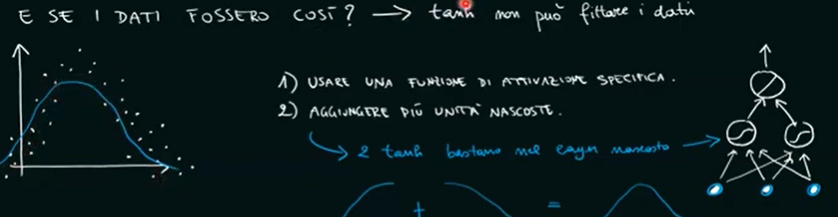 E SE I DATI FOSSERO COSÌ? → tanh non può fittare i dati
1) USARE UNA FUNZIONE DI ATTIVAZIONE SPECIFICA.
2) AGGIUNGERE PIÙ UNITÀ NASCOSTE.
→ 2 tanh bastano nel layer nascosto →
+ =